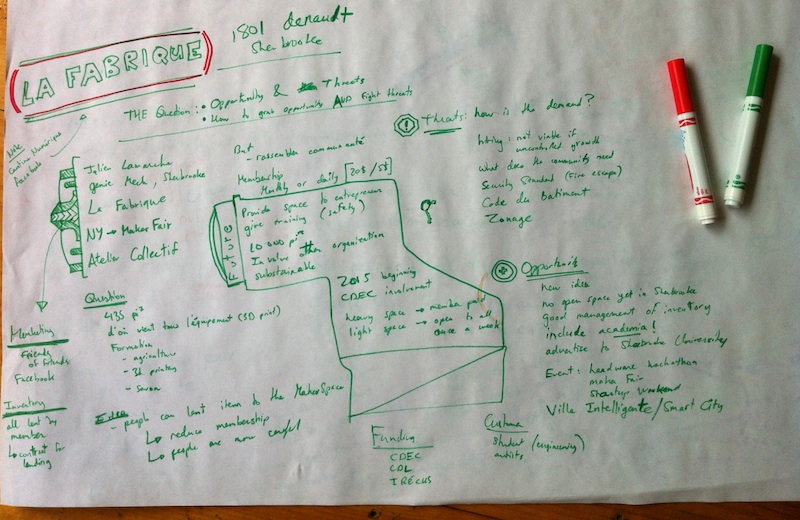 LA FABRIQUE
1801 denault
Sherbrooke
THE Question : • Opportunity & Threats
• How to grab opportunity AND Fight threats
Facebook
Julien Lamarche
genie Mech, Sherbrooke
La Fabrique
NY → Maker Fair
Atelier Collectif
But
- rassembler communauté
Membership
Monthly or daily [20$ / 5$]
Future
Provide space to entrepreneur
give training (safety)
10 000 pi²
Involve other organization
substainable
2015 beginning
CDEC involvement
heavy space → member
light space → open to all
once a week
Threats: how is the demand?
hiring: not viable if
uncontrolled growth
What does the community need
Security Standard (Fire escape)
Code du batiment
Zonage
Opportunity
new idea
no open space yet in Sherbrooke
Good management of inventory
include academia!
advertise to Sherbrooke University
Event: hardware hackathon
maker Fair
Startup Weekend
Ville Intelligente/Smart City
Question
435 pi²
d'où vient tous l'équipement (3D print)
Formation
- agriculture
- 3D printing
- Savon
Marketing
Friends
of friends
Facebook
Inventory
all lent by
member
↳ contract for
lending
- people can lent item to the MakerSpace
↳ reduce membership
↳ people are more careful
Funding
CDEC
CDL
IRÉCUS
Customer
student (engineering)
artists